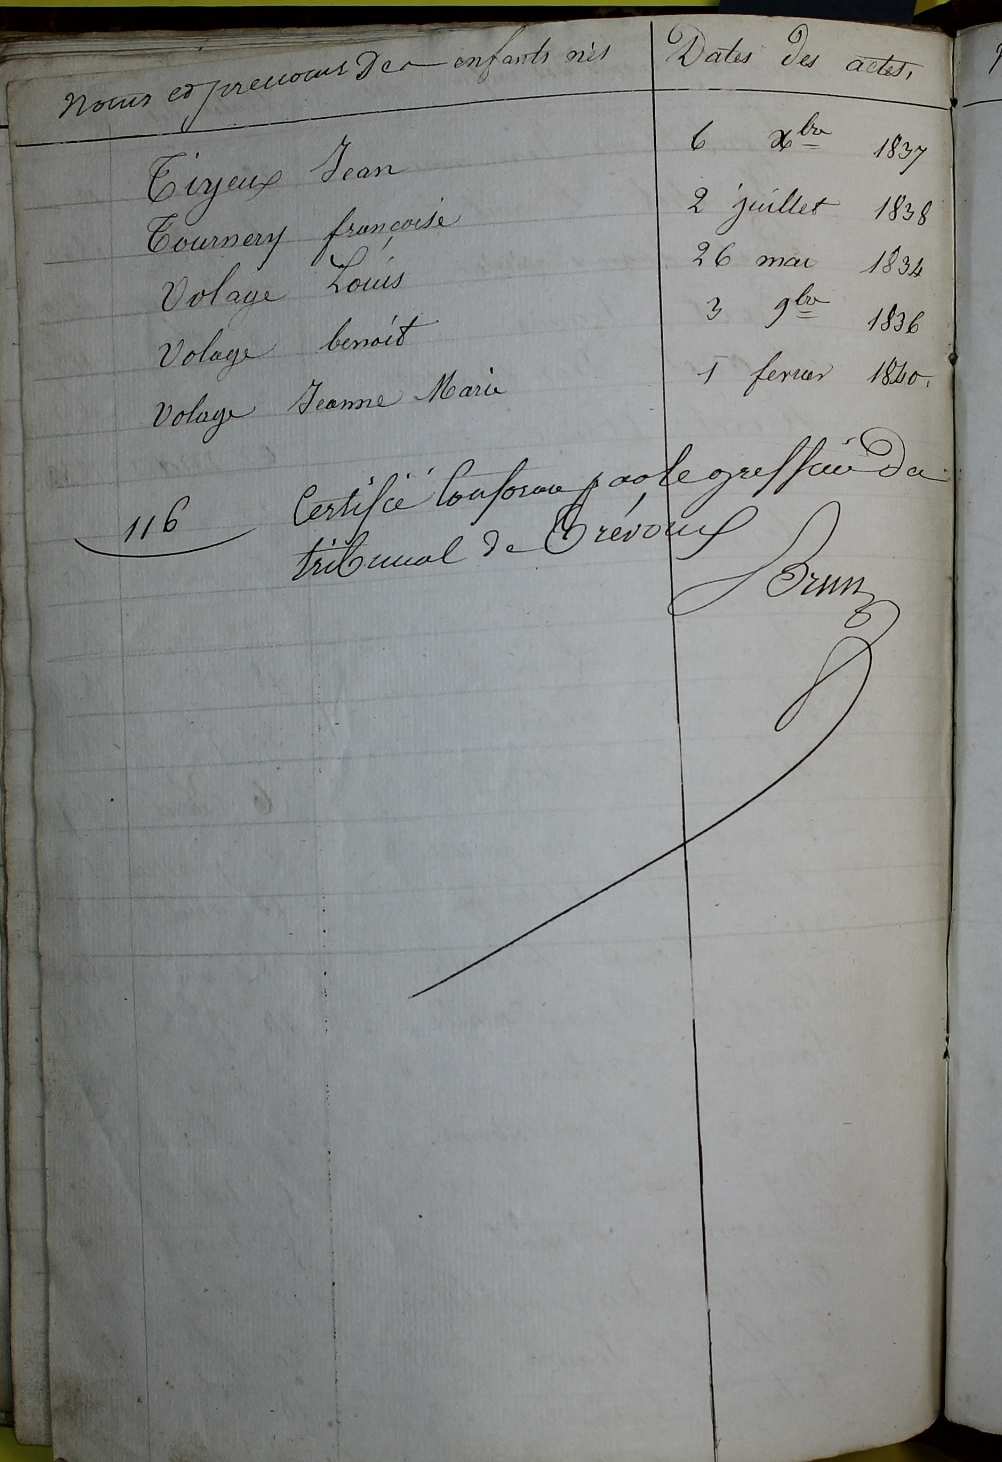 Noms et prenoms des enfants nés Dates des actes,
Tizeux Jean 6 Xbre 1837
Tournery françoise 2 juillet 1838
Volage Louis 26 mai 1834
Volage benoit 3 9bre 1836
Volage Jeanne Marie 1 fevrier 1840.
116 Certifié Conforme par le greffier du
tribunal de Trévoux
Brun